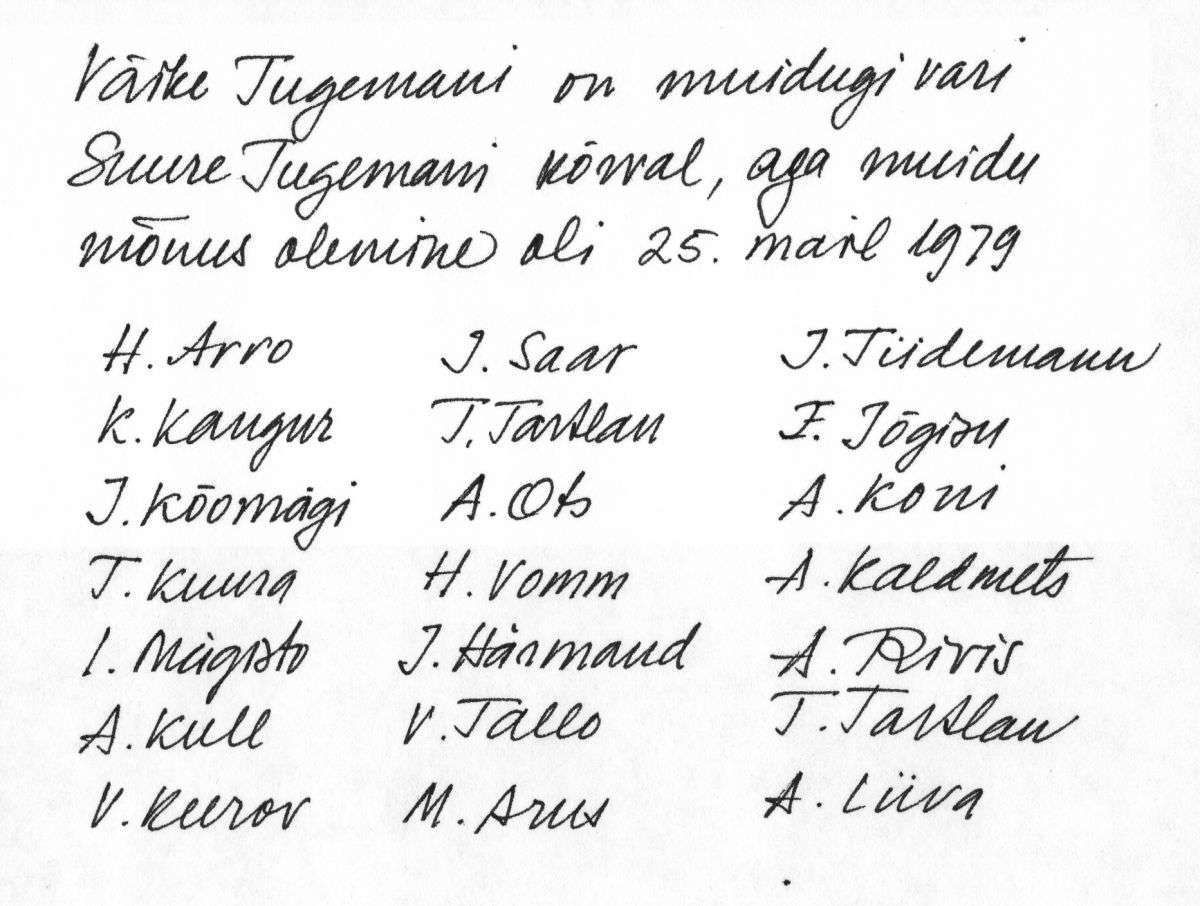 Väike Tugemani on muidugi vari
Suure Tugemani kõrval, aga muidu
mõnus olemine oli 25. mail 1979
H. Arro J. Saar J. Tiidemann
K. Kangur T. Tartlan E. Jõgisu
J. Kõomägi A. Ots A. Koni
T. Kuura H. Vomm A. Kaldmets
I. Mägisto J. Härmand A. Rivis
A. Kull V. Tallo T. Tartlan
V. Keerov M. Arus A. Liiva